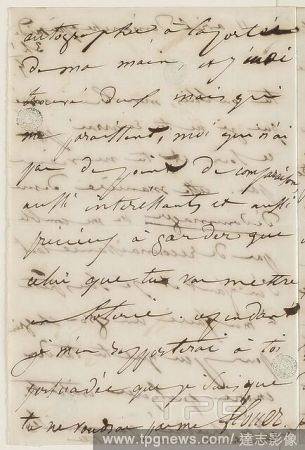 autographes à la portée
de ma main, et j'en ai
trouvé deux mais qui
me paraissent, moi qui n'ai
pas de point de comparaison
aussi interessants et aussi
précieux à garder que
celui que tu vas mettre
en loterie. cependant
je m'en rapporterai à toi
persuadée que
tu ne voudras pas me
TPG
www.tpgnews.com/達志影像